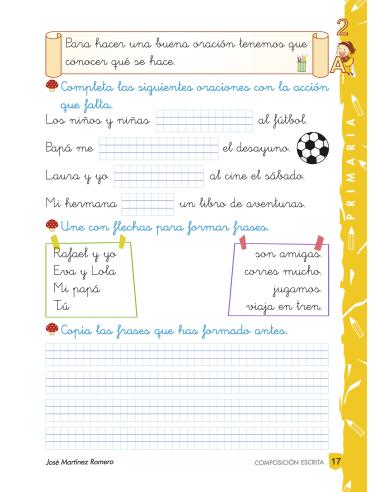 Para hacer una buena oración tenemos que
conocer qué se hace.
2
A
PRIMARIA
Completa las siguientes oraciones con la acción
que falta.
Los niños y niñas al fútbol.
Papá me el desayuno.
Laura y yo al cine el sábado.
Mi hermana un libro de aventuras.
Une con flechas para formar frases.
Rafael y yo
Eva y Lola
Mi papá
Tú
son amigas.
corres mucho.
jugamos.
viaja en tren.
Copia las frases que has formado antes.
José Martínez Romero
COMPOSICIÓN ESCRITA 17